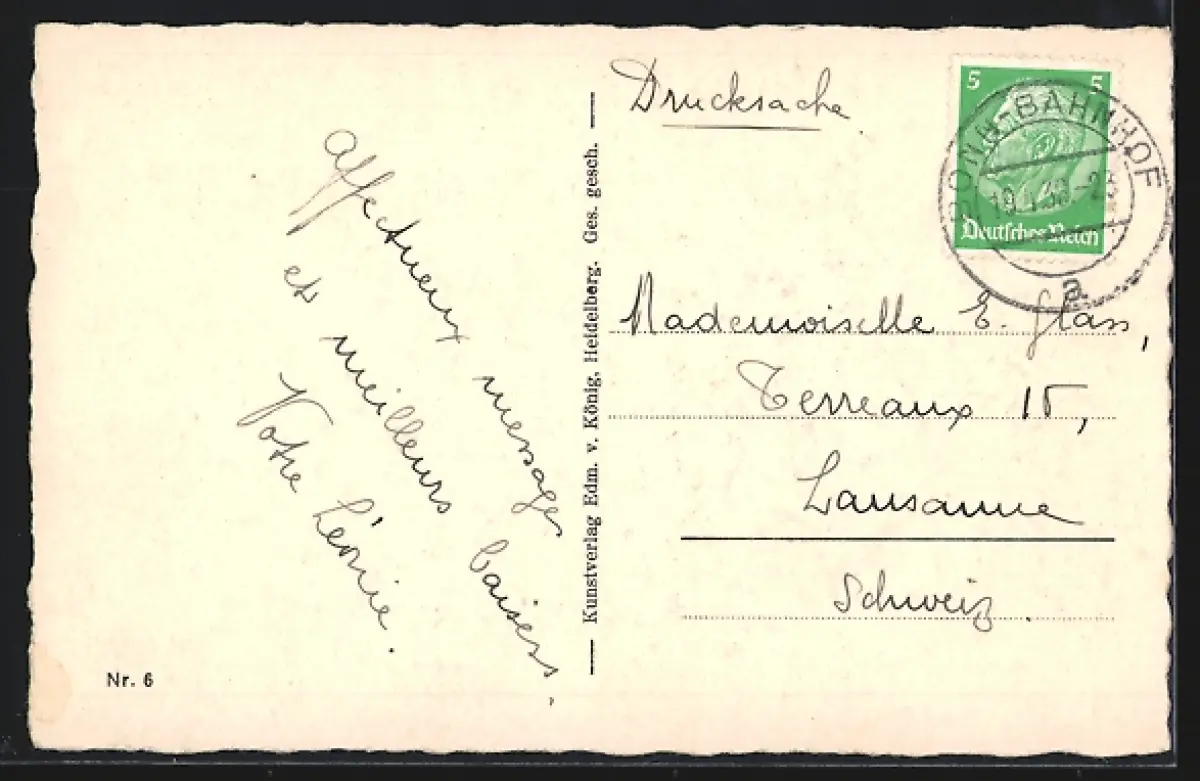 Affectueux message
et meilleurs baisers,
Votre Léonie.
Nr. 6
Kunstverlag Edm. v. König, Heidelberg. Ges. gesch.
Drucksache
5 5
Deutsches Reich
BONN-BAHNHOF
a
Mademoiselle E. Glass,
Terreaux 15,
Lausanne
Schweiz